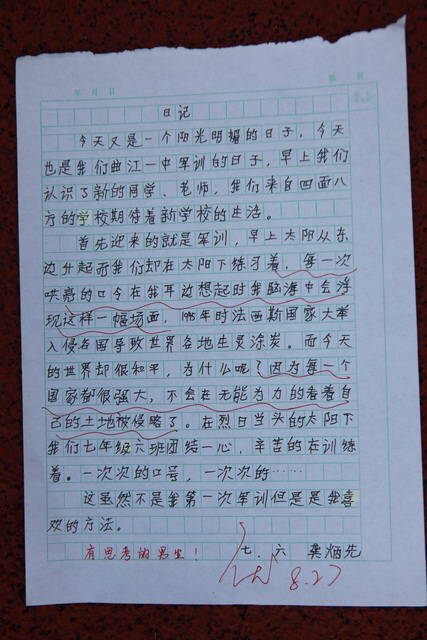 年 月 日
日记
今天又是一个阳光明媚的日子，今天
也是我们曲江一中军训的日子，早上我们
认识了新的同学、老师，我们来自四面八
方的学校期待着新学校的生活。
首先迎来的就是军训，早上太阳从东
边升起而我们却在太阳下练习着，每一次
哄亮的口令在我耳边想起时我脑海中会浮
现这样一幅场面，1945年时法西斯国家大举
入侵各国导致世界各地生灵涂炭。而今天
的世界却很和平，为什么呢？因为每一个
国家都很强大，不会在无能为力的看着自
己的土地被侵略了。在烈日当头的太阳下
我们七年级六班团结一心，辛苦的在训练
着。一次次的口号，一次次的……
这虽然不是我第一次军训但是是我喜
欢的方法。
有思考的男生！ 七．六 龚炳先
8.27